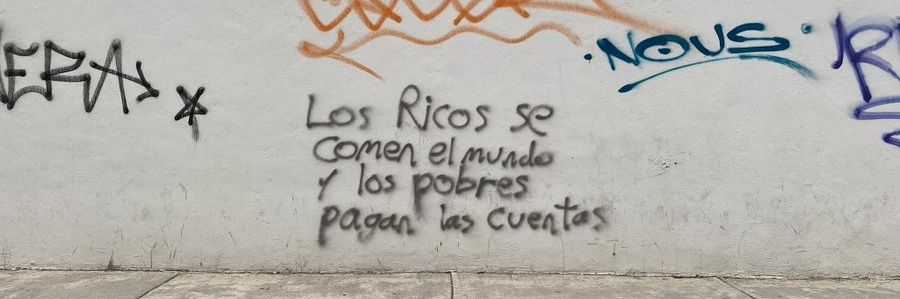 ERA
NOUS
Los Ricos se
comen el mundo
y los pobres
pagan las cuentas